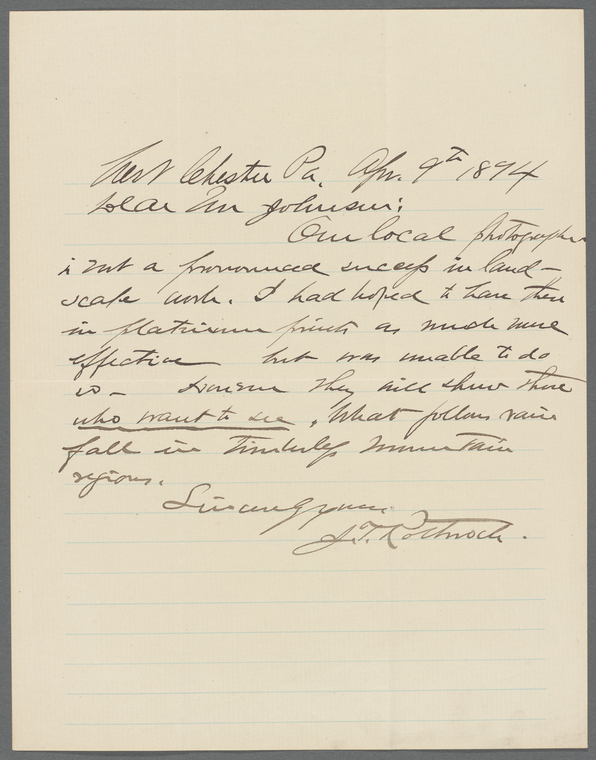 West Chester Pa. Apr. 9th 1894
Dear Mr Johnson:
Our local photographer
is not a pronounced success in land-
scape work. I had hoped to have them
in platinum prints as much more
effective but was unable to do
so - However they will show those
who want to see. What follows rain
fall in timberless mountain
regions.
Sincerely yours
J.T. Rothrock.